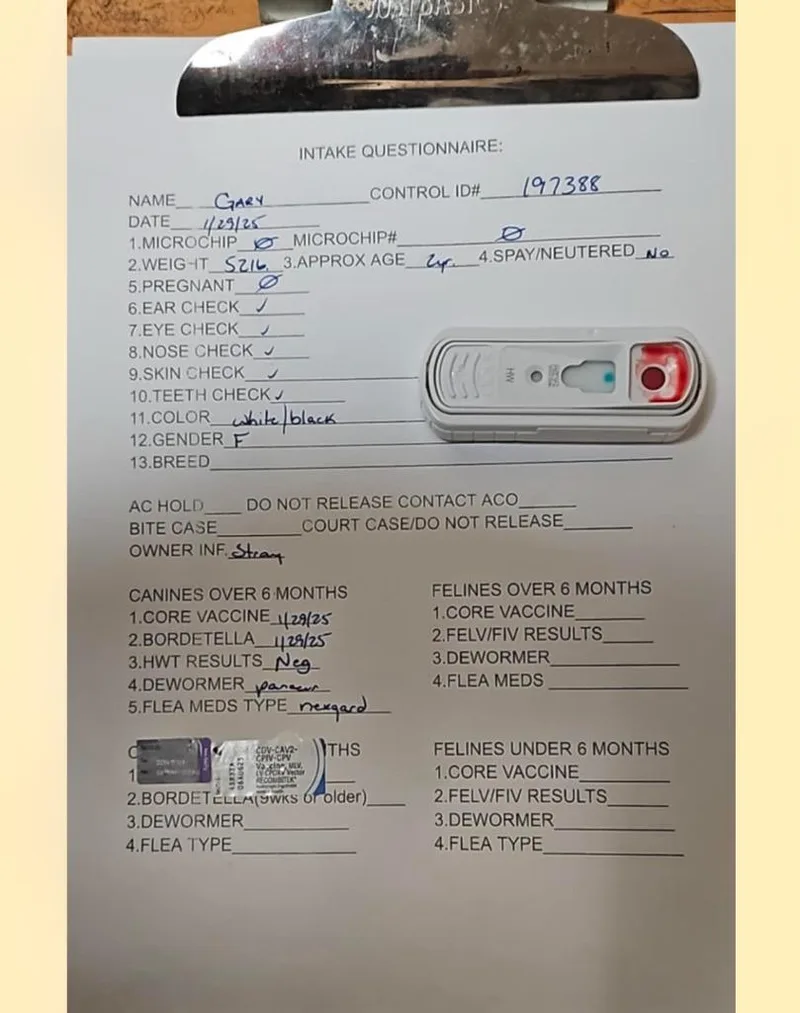 INTAKE QUESTIONNAIRE:
NAME Gary CONTROL ID# 197388
DATE 1/29/25
1.MICROCHIP Ø MICROCHIP# Ø
2.WEIGHT 52lb. 3.APPROX AGE 2yr. 4.SPAY/NEUTERED No
5.PREGNANT Ø
6.EAR CHECK ✓
7.EYE CHECK ✓
8.NOSE CHECK ✓
9.SKIN CHECK ✓
10.TEETH CHECK ✓
HW
11.COLOR white/black
12.GENDER F
13.BREED
AC HOLD DO NOT RELEASE CONTACT ACO
BITE CASE COURT CASE/DO NOT RELEASE
OWNER INF. Stray
CANINES OVER 6 MONTHS
1.CORE VACCINE 1/29/25
2.BORDETELLA 1/29/25
3.HWT RESULTS Neg
4.DEWORMER panacur
5.FLEA MEDS TYPE nexgard
FELINES OVER 6 MONTHS
1.CORE VACCINE
2.FELV/FIV RESULTS
3.DEWORMER
4.FLEA MEDS
C THS
CDV-CAV2-
CPIV-CPV
Vaccine, MLV,
RECOMBITEK
1
2.BORDETELLA(9wks or older)
3.DEWORMER
4.FLEA TYPE
FELINES UNDER 6 MONTHS
1.CORE VACCINE
2.FELV/FIV RESULTS
3.DEWORMER
4.FLEA TYPE